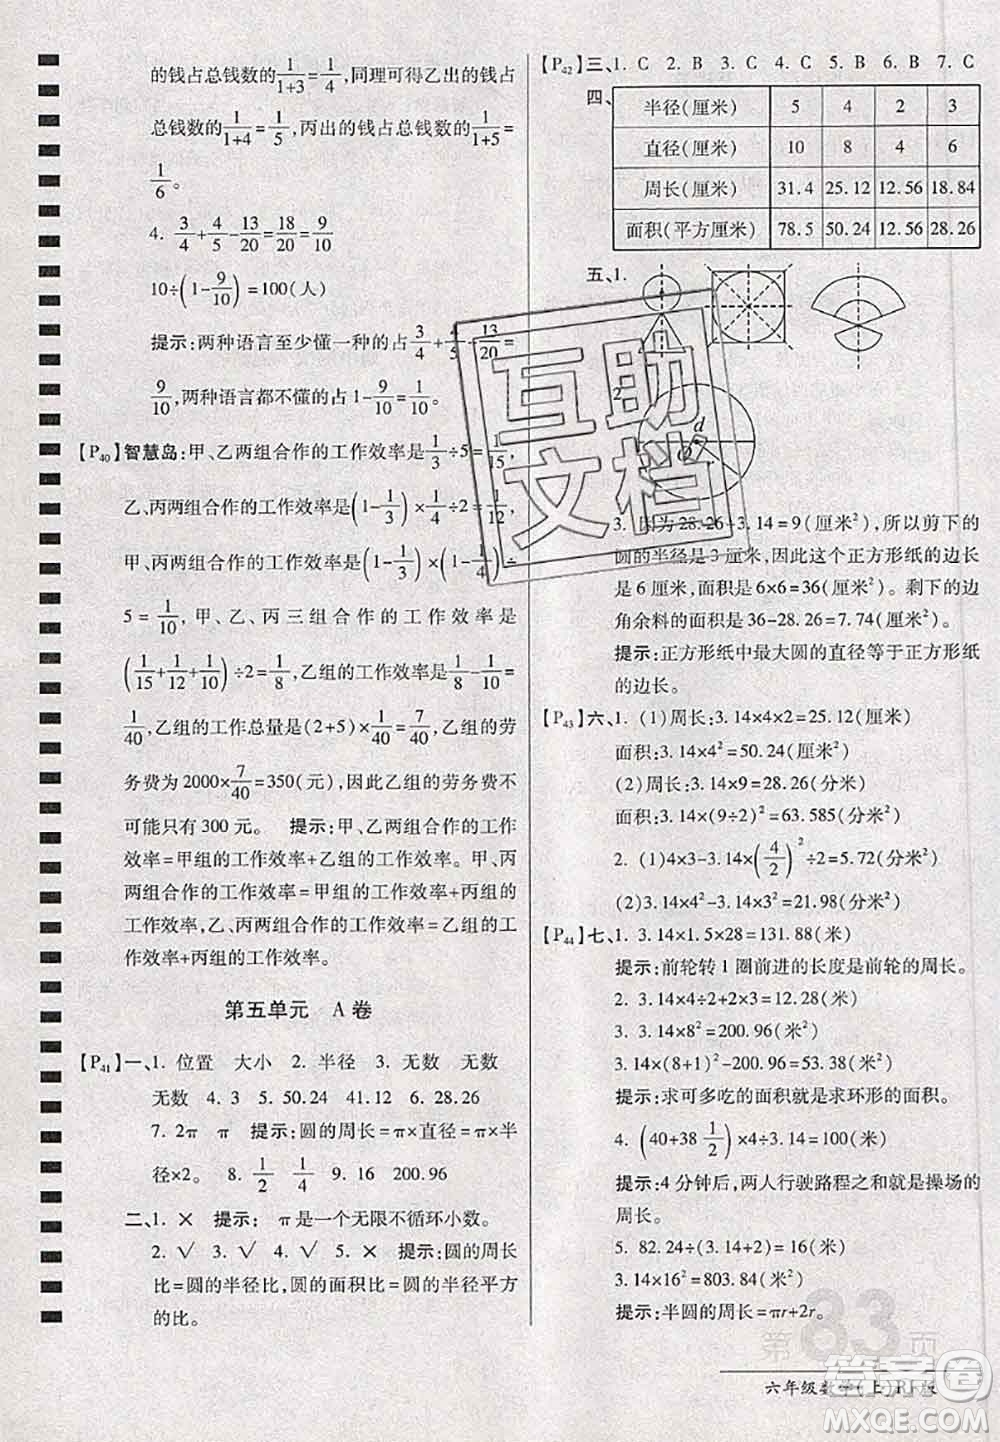 的钱占总钱数的1/(1+3)=1/4,同理可得乙出的钱占
总钱数的1/(1+4)=1/5,丙出的钱占总钱数的1/(1+5)=
1/6。
4. 3/4+4/5-13/20=18/20=9/10
10÷(1-9/10)=100(人)
提示:两种语言至少懂一种的占3/4+4/5-13/20=
9/10,两种语言都不懂的占1-9/10=1/10。
【P40】智慧岛:甲、乙两组合作的工作效率是1/3÷5=1/15,
乙、丙两组合作的工作效率是(1-1/3)×1/4÷2=1/12,
甲、丙两组合作的工作效率是(1-1/3)×(1-1/4)÷
5=1/10,甲、乙、丙三组合作的工作效率是
(1/15+1/12+1/10)÷2=1/8,乙组的工作效率是1/8-1/10=
1/40,乙组的工作总量是(2+5)×1/40=7/40,乙组的劳
务费为2000×7/40=350(元),因此乙组的劳务费不
可能只有300元。 提示:甲、乙两组合作的工作
效率=甲组的工作效率+乙组的工作效率。甲、丙
两组合作的工作效率=甲组的工作效率+丙组的
工作效率,乙、丙两组合作的工作效率=乙组的工
作效率+丙组的工作效率。
第五单元 A卷
【P41】一、1. 位置 大小 2. 半径 3. 无数 无数
无数 4. 3 5. 50.24 41.12 6. 28.26
7. 2π π 提示:圆的周长=π×直径=π×半
径×2。 8. 1/2 1/4 9. 16 200.96
二、1. × 提示: π是一个无限不循环小数。
2. √ 3. √ 4. √ 5. × 提示:圆的周长
比=圆的半径比,圆的面积比=圆的半径平方
的比。
【P42】三、1. C 2. B 3. C 4. C 5. C 6. B 7. C
四、
半径(厘米) 5 4 2 3
直径(厘米) 10 8 4 6
周长(厘米) 31.4 25.12 12.56 18.84
面积(平方厘米) 78.5 50.24 12.56 28.26
五、1.
2.
d
3. 因为28.26÷3.14=9(厘米²),所以剪下的
圆的半径是3厘米,因此这个正方形纸的边长
是6厘米,面积是6×6=36(厘米²)。剩下的边
角余料的面积是36-28.26=7.74(厘米²)。
提示:正方形纸中最大圆的直径等于正方形纸
的边长。
【P43】六、1. (1)周长:3.14×4×2=25.12(厘米)
面积:3.14×4²=50.24(厘米²)
(2)周长:3.14×9=28.26(分米)
面积:3.14×(9÷2)²=63.585(分米²)
2. (1)4×3-3.14×(4/2)²÷2=5.72(分米²)
(2)3.14×4²-3.14×3²=21.98(分米²)
【P44】七、1. 3.14×1.5×28=131.88(米)
提示:前轮转1圈前进的长度是前轮的周长。
2. 3.14×10²-3.14×6²=200.96(米²)
3. 3.14×8²=200.96(米²)
3.14×(8+1)²-200.96=53.38(米²)
提示:求可多吃的面积就是求环形的面积。
4. (40+38 1/2)×4÷3.14=100(米)
提示:4分钟后,两人行驶路程之和就是操场的
周长。
5. 82.24÷(3.14+2)=16(米)
3.14×16²=803.84(米²)
提示:半圆的周长=πr+2r。
第83页
六年级数学(上)RJ版
互助
文档
答案圈
MXQE.COM